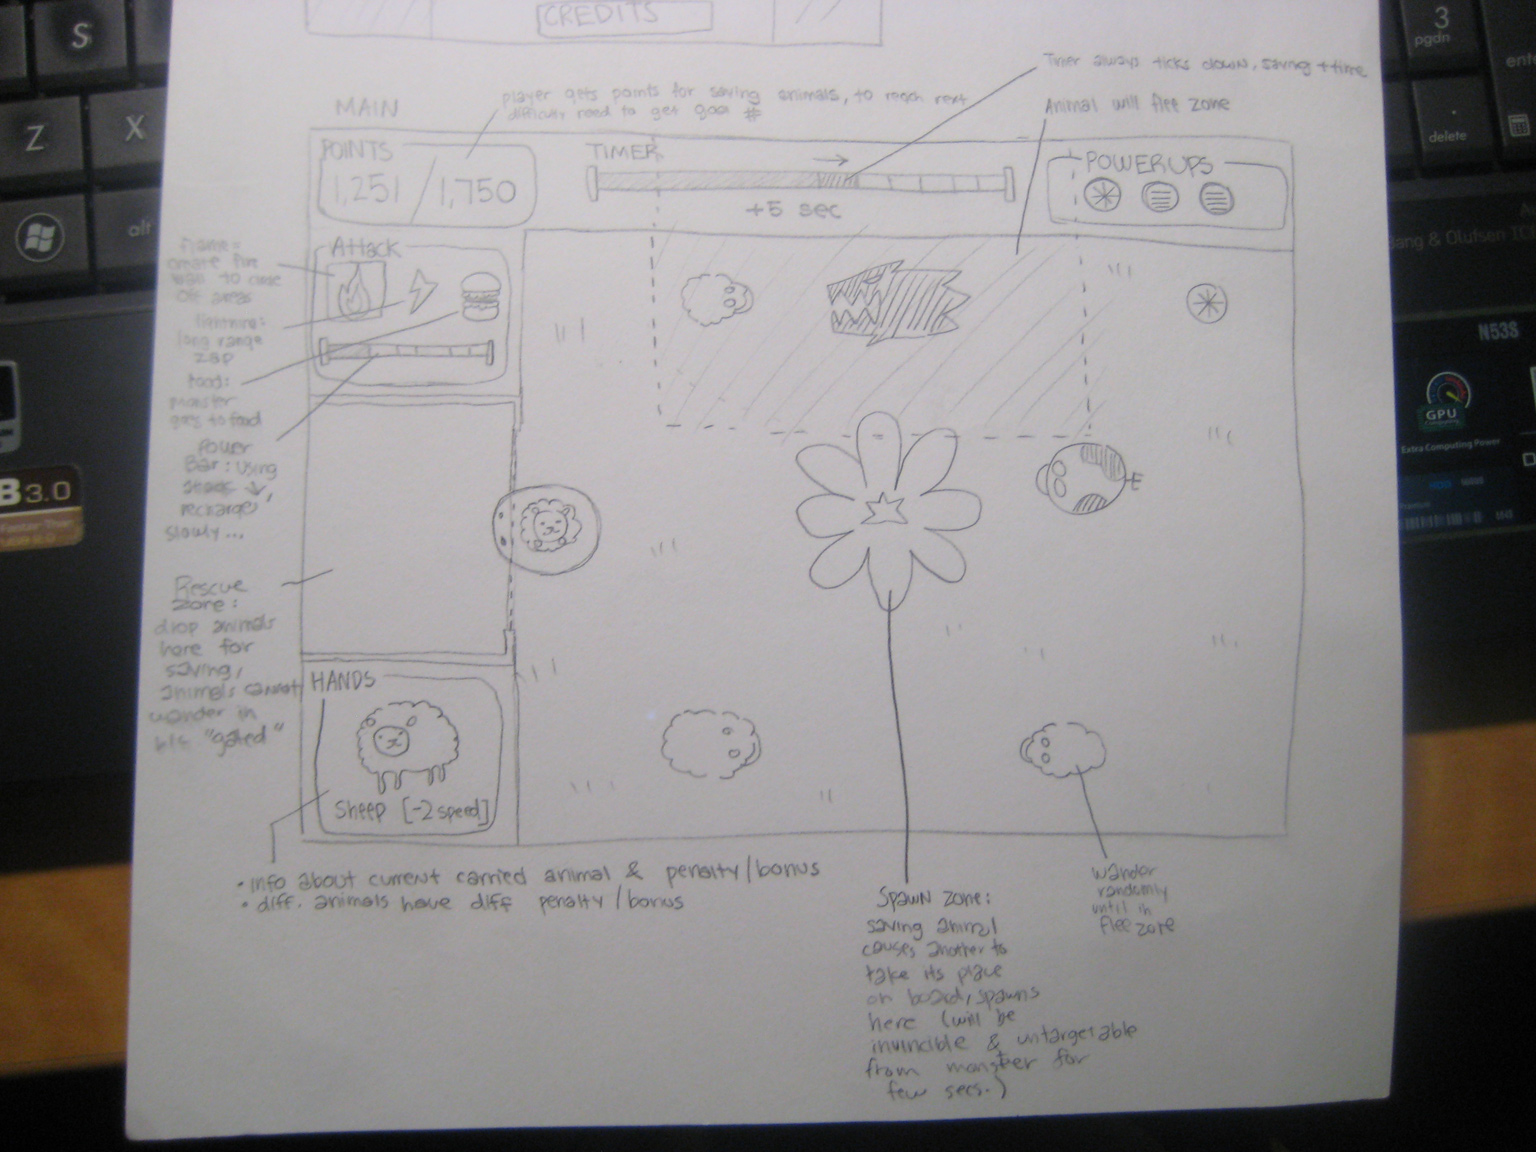 CREDITS
MAIN
player gets points for saving animals, to reach next
difficulty need to get goal #
Timer always ticks down, saving +time
Animal will flee zone
POINTS
1,251 / 1,750
TIMER
+5 sec
POWERUPS
Attack
flame =
create fire
wall to close
off areas
lightning:
long range
zap
food:
monster
goes to food
Power
Bar: using
recharges
slowly...
Rescue
zone:
drop animals
here for
saving,
animals cannot
wander in
b/c "gated"
HANDS
Sheep [-2 speed]
• info about current carried animal & penalty/bonus
• diff. animals have diff penalty/bonus
Spawn zone:
saving animal
causes another to
take its place
on board, spawns
here (will be
invincible & untargetable
from monster for
few secs.)
Wander
randomly
until in
flee zone
S
Z
X
alt
3
pgdn
enter
.
delete
Bang & Olufsen IC
N53S
GPU
Extra Computing Power
B 3.0